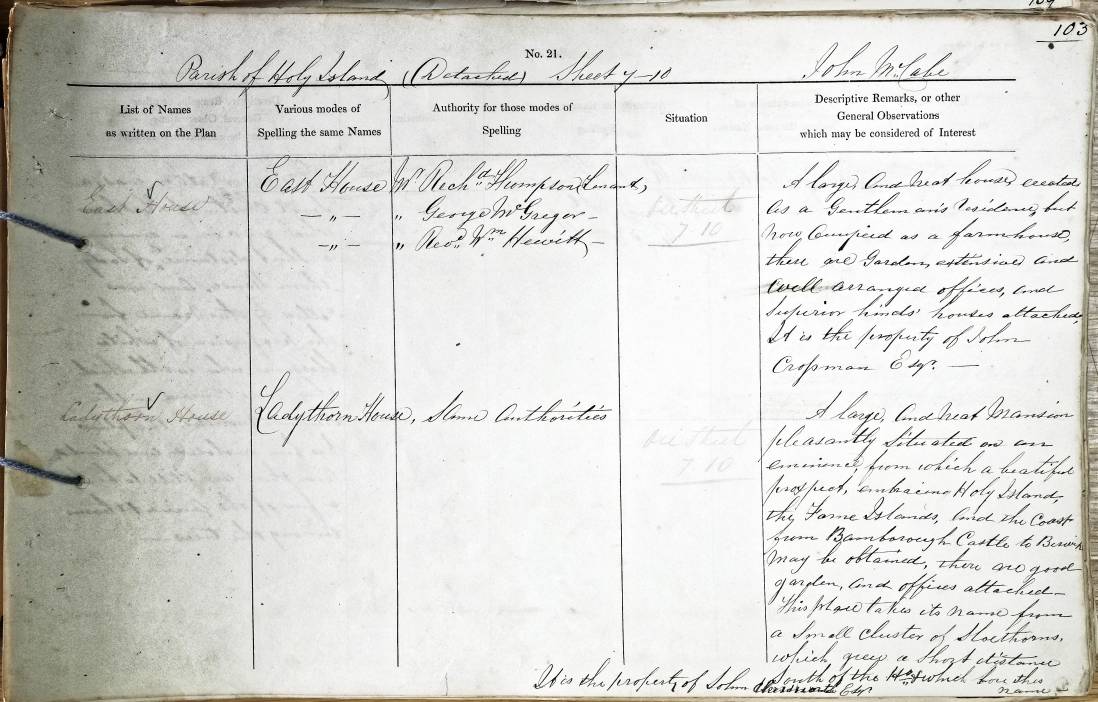 103
No. 21.
Parish of Holy Island (Detached) Sheet 7-10 John McCabe
List of Names
as written on the Plan
Various modes of
Spelling the same Names
Authority for those modes of
Spelling
Situation
Descriptive Remarks, or other
General Observations
which may be considered of Interest
East House
East House
— „ —
— „ —
Mr Rechd Thompson, Tenant,
„ George McGregor —
„ Revd Wm Hewitt —
See Sheet
7 10
A large, and neat house, erected
as a Gentleman's residence, but
now occupied as a farmhouse,
there are Garden, extensive and
well arranged offices, and
superior hinds' houses attached,
It is the property of John
Crossman Esqr. —
Ladythorn House
Ladythorn House,
Same authorities
See Sheet
7 10
A large, and neat Mansion
pleasantly situated on an
eminence, from which a beatiful
prospect, embracing Holy Island,
the Farne Islands, and the Coast
from Bamborough Castle to Berwick
may be obtained, there are good
garden, and offices attached—
This place takes its name from
a small cluster of Sloethorns,
which grew a short distance
South of the Ho. & which bore this
name
It is the property of John Esqr